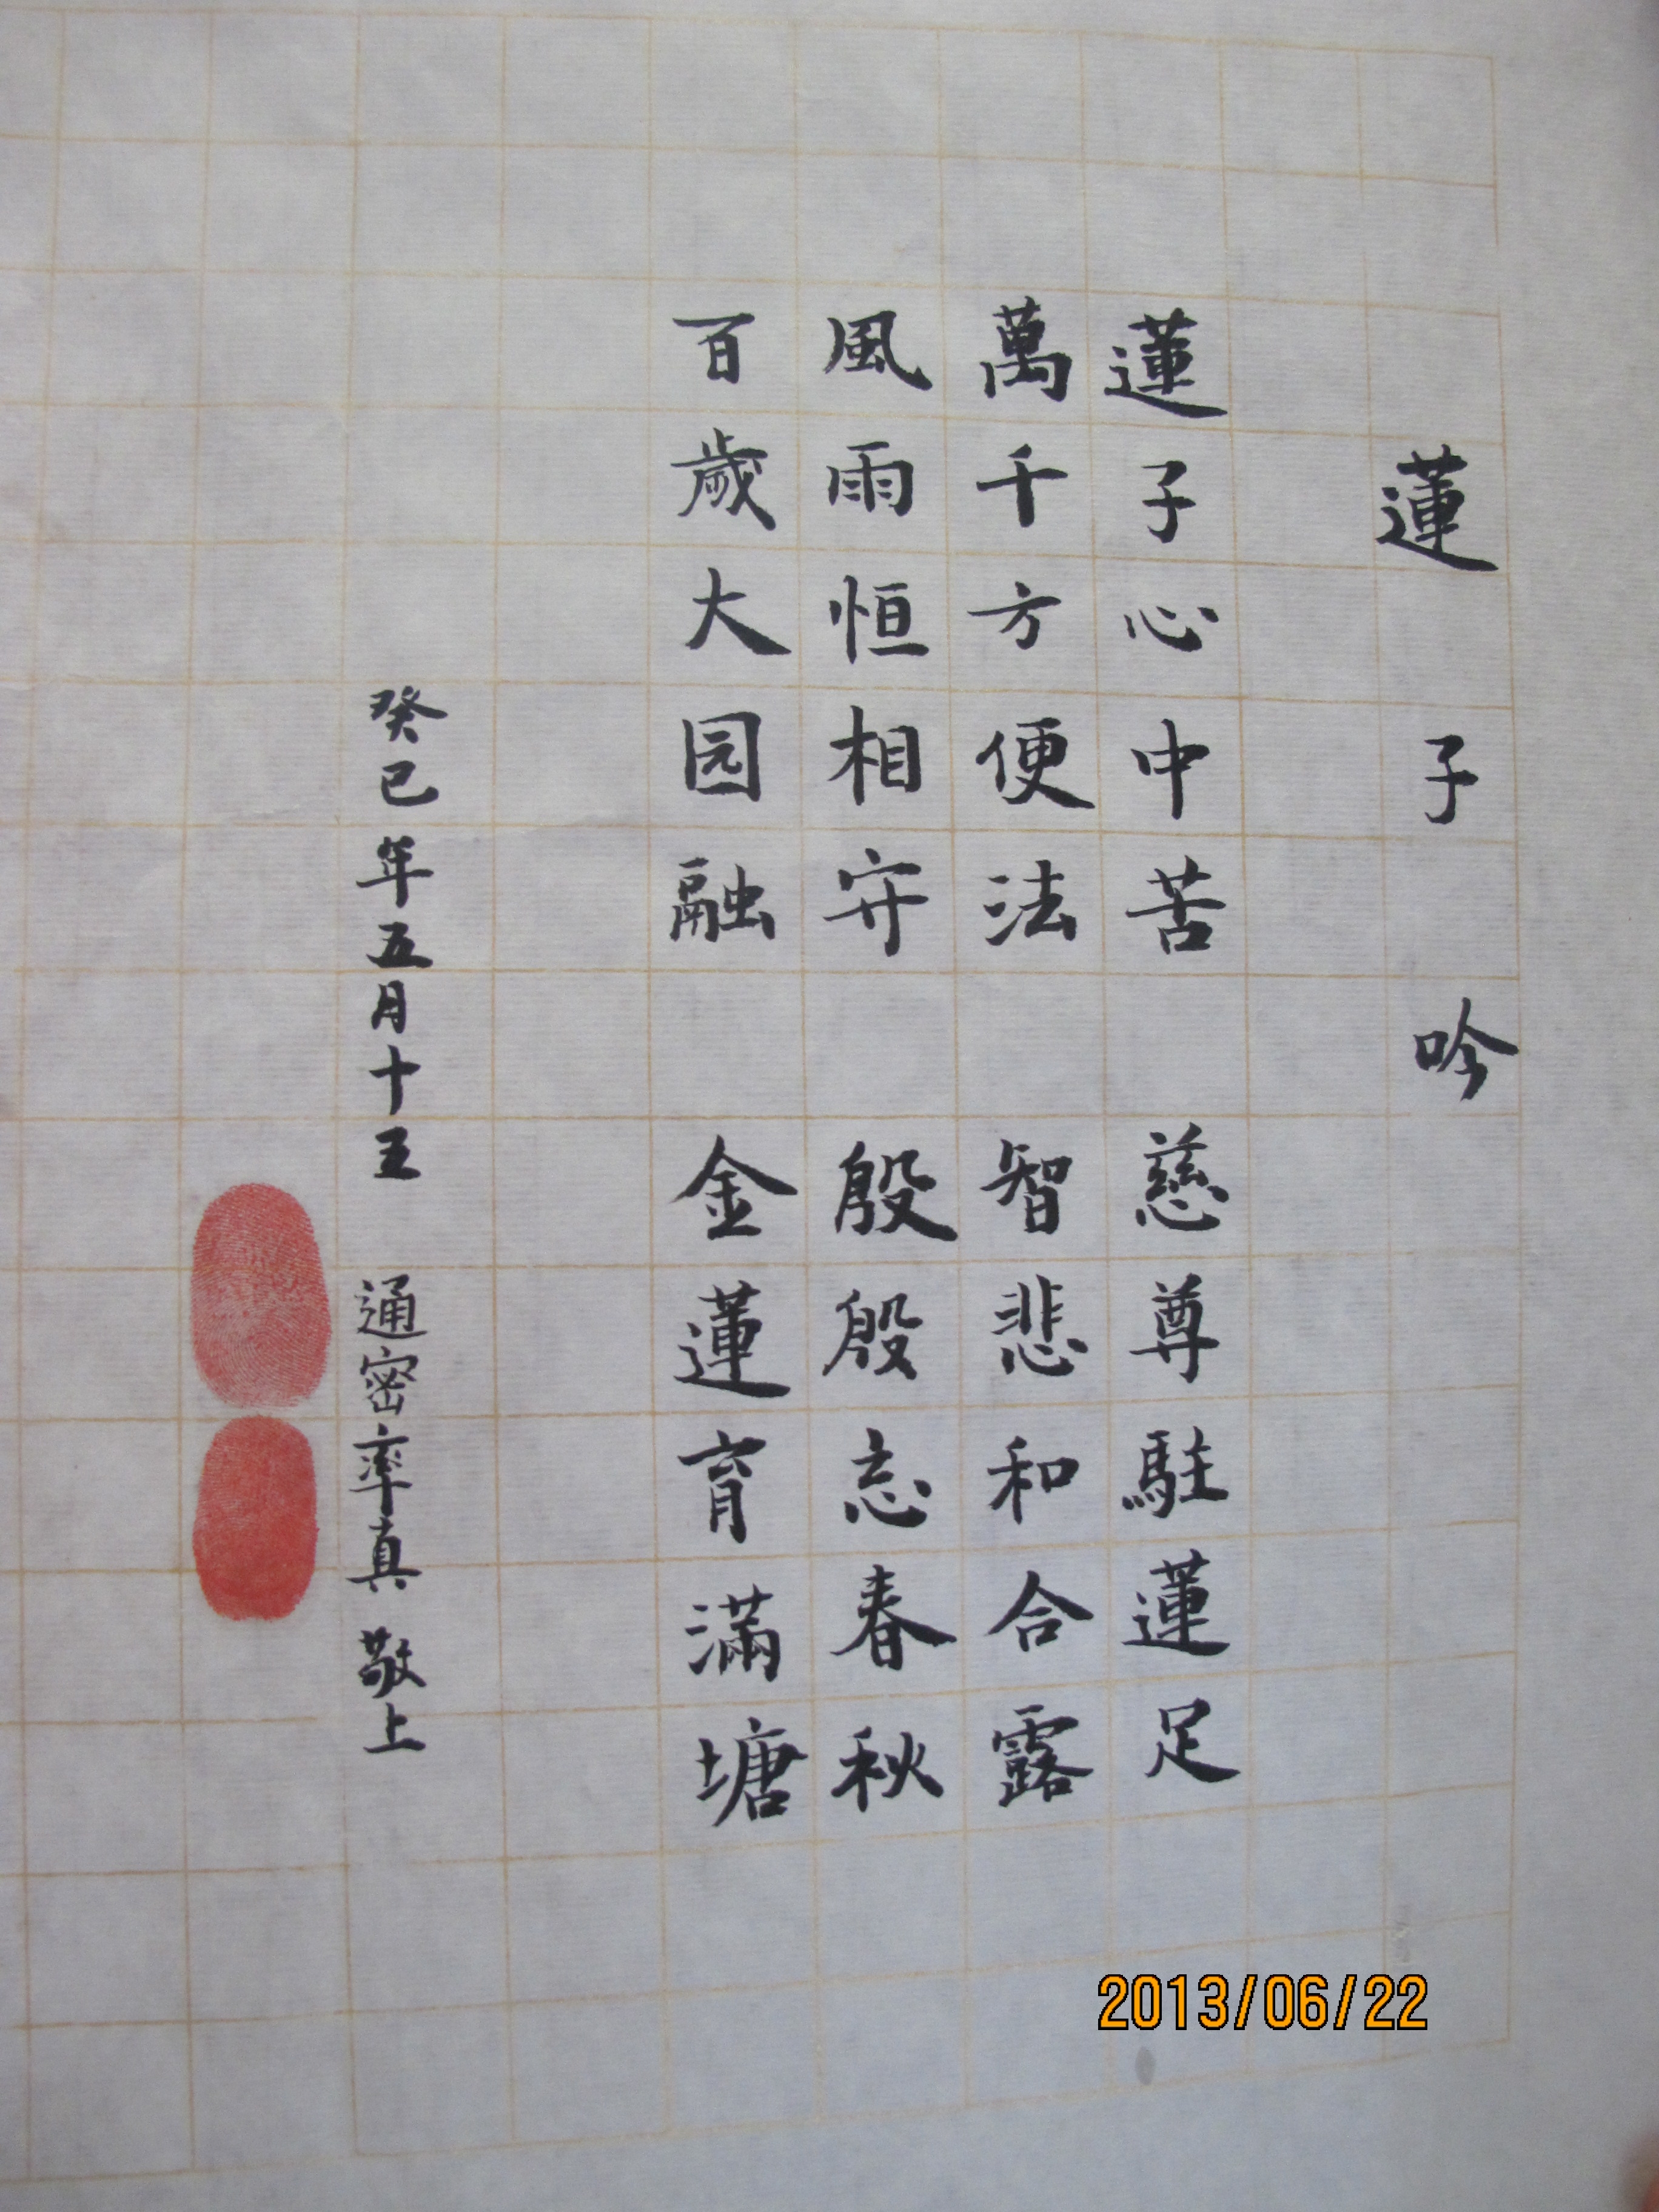 蓮子吟
蓮子心中苦 慈尊駐蓮足
萬千方便法 智悲和合露
風雨恒相守 殷殷忘春秋
百歲大园融 金蓮育滿塘
癸巳年五月十五 通密率真 敬上
2013/06/22